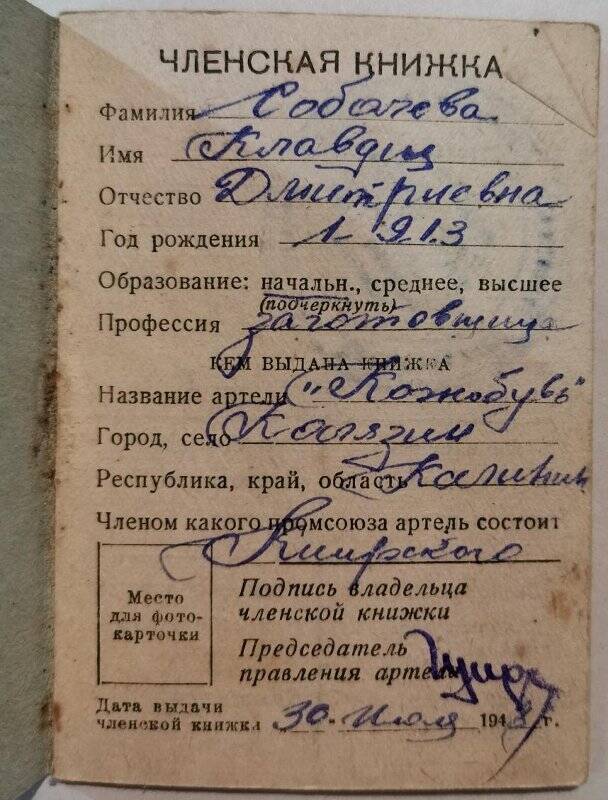 ЧЛЕНСКАЯ КНИЖКА
Фамилия Собачева
Имя Клавдия
Отчество Дмитриевна
Год рождения 1913
Образование: начальн., среднее, высшее
(подчеркнуть)
Профессия заготовщица
КЕМ ВЫДАНА КНИЖКА
Название артели "Кожобувь"
Город, село Калязин
Республика, край, область Калинин
Членом какого промсоюза артель состоит
Место
для фото-
карточки
Подпись владельца
членской книжки
Председатель
правления артели
Дата выдачи
членской книжки 30 июля 194 г.